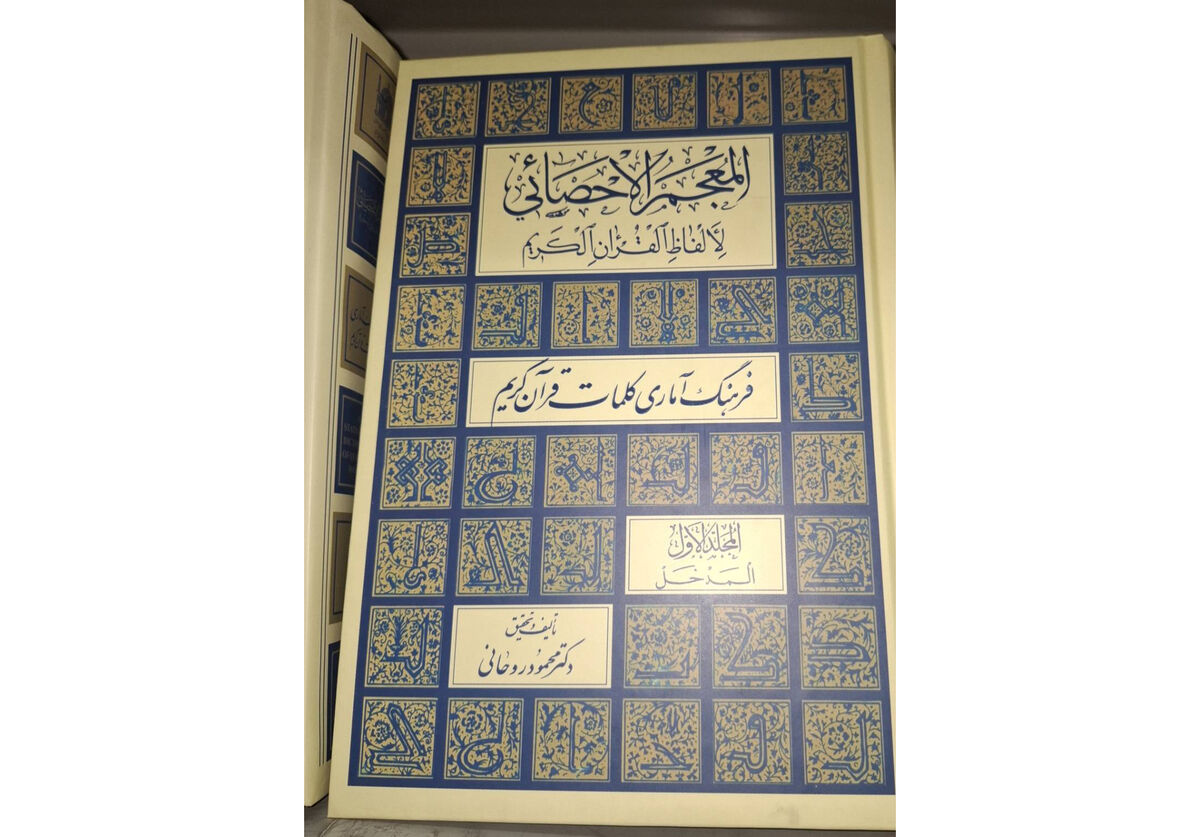 المُعْجَمُ الْأِحْصَائِي
لِأَلْفَاظِ الْقُرْآنِ الْكَرِيم
فرهنگ آماری کلمات قرآن کریم
المجلد الأول
المدخل
تألیف و تحقیق
دکتر محمود روحانی